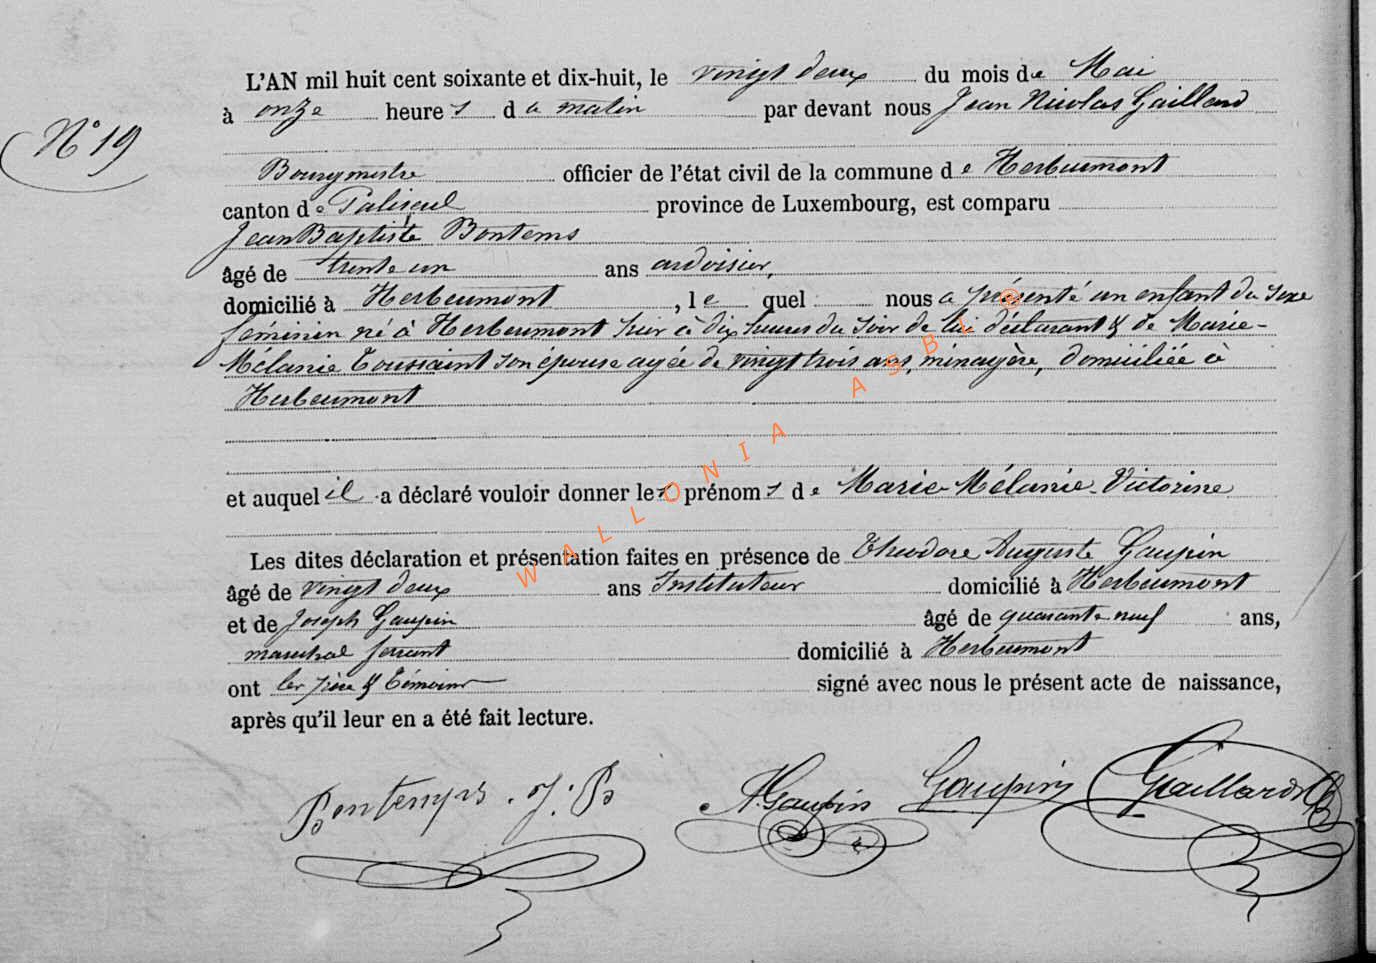 N° 19
L'AN mil huit cent soixante et dix-huit, le vingt deux du mois de Mai
à onze heures du matin par devant nous Jean Nicolas Gaillard
Bourgmestre officier de l'état civil de la commune de Herbeumont
canton de Paliseul province de Luxembourg, est comparu
Jean Baptiste Bontems
âgé de trente un ans ardoisier,
domicilié à Herbeumont, lequel nous a présenté un enfant du sexe
féminin né à Herbeumont hier à dix heures du soir de lui déclarant & de Marie-
Mélanie Toussaint son épouse agée de vingt trois ans, ménagère, domiciliée à
Herbeumont
et auquel il a déclaré vouloir donner les prénoms de Marie-Mélanie-Victorine
Les dites déclaration et présentation faites en présence de Théodore Auguste Gaupin
âgé de vingt deux ans Instituteur domicilié à Herbeumont
et de Joseph Gaupin âgé de quarante neuf ans,
marechal ferrant domicilié à Herbeumont
ont les père & témoins signé avec nous le présent acte de naissance,
après qu'il leur en a été fait lecture.
Bontemps . J. B A. Gaupin Gaupin Gaillard
WALLONIA ASBL ®